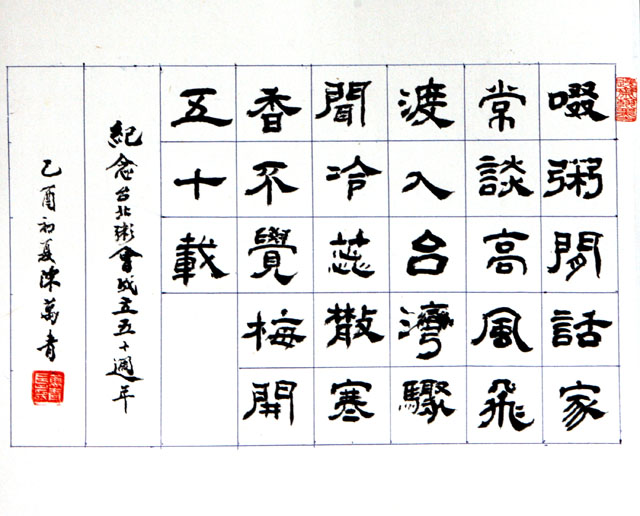 啜粥閒話家
常談高風飛
渡入台灣驟
聞冷蕊散寒
香不覺梅開
五十載
紀念台北粥會成立五十週年
乙酉初夏陳萬青